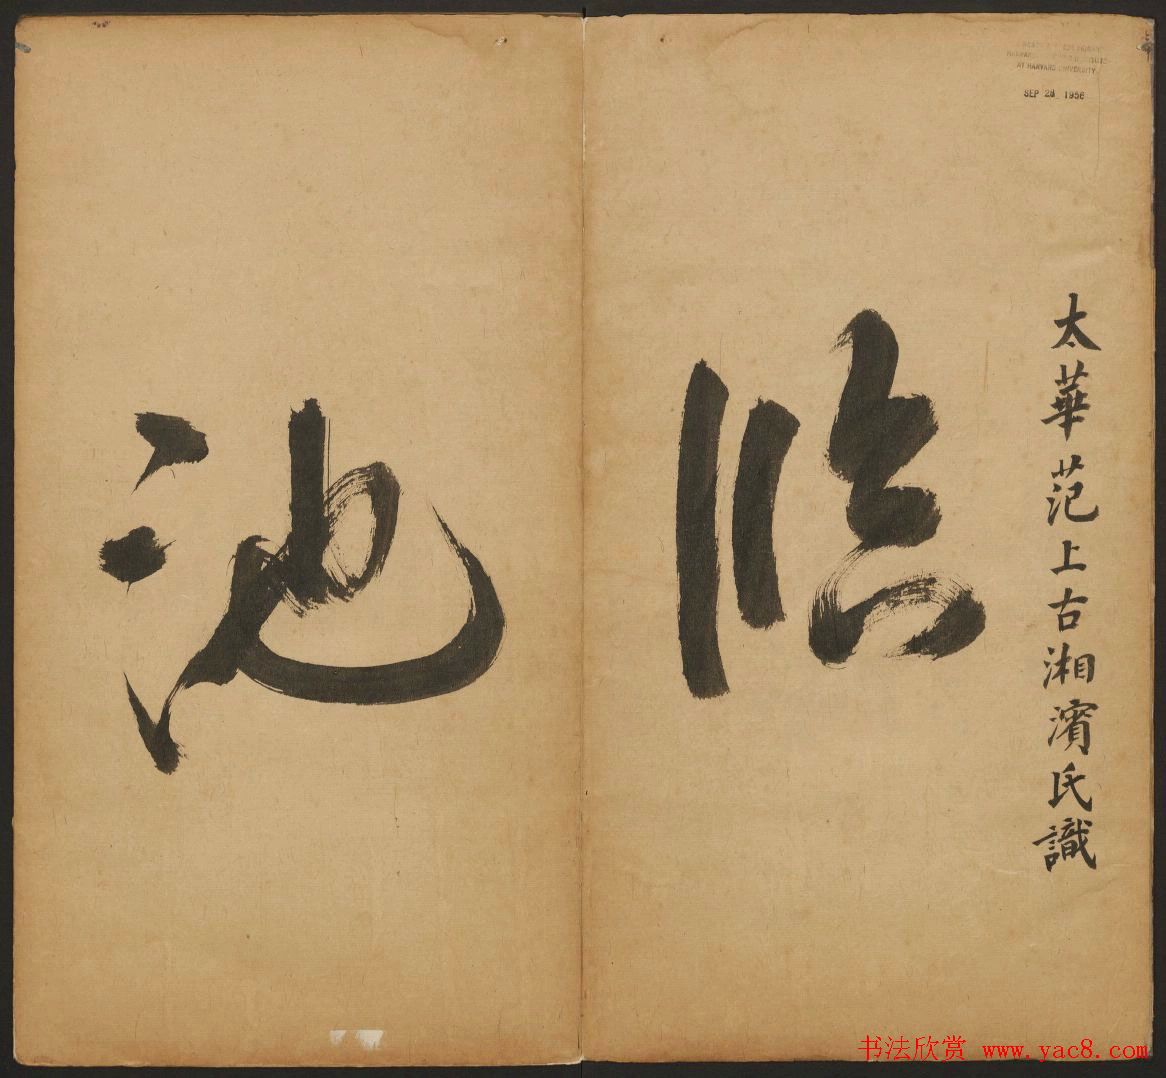 太華范上古湘濱氏識
臨
池
AT HARVARD UNIVERSITY
SEP 28 1956
书法欣赏 www.yac8.com